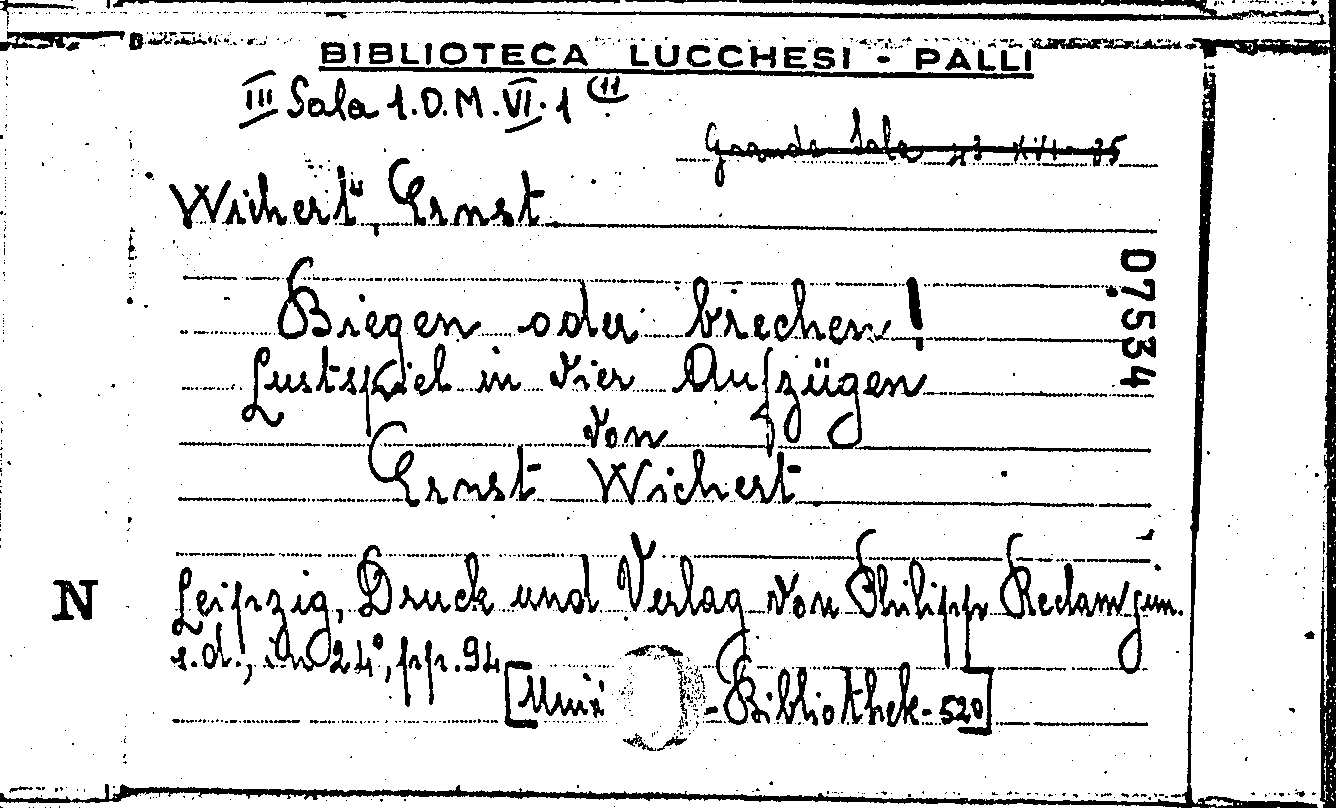 BIBLIOTECA LUCCHESI - PALLI
III Sala 1.D.M.VI.1 (11
Grande Sala
Wichert, Ernst.
Biegen oder brechen!
Lustspiel in vier Aufzügen
von
Ernst Wichert
07534
N
Leipzig, Druck und Verlag von Philipp Reclam jun.
s.d., in 24°, pp. 94
[Univ -Bibliothek - 520]